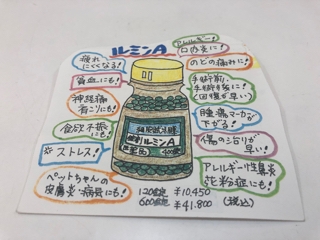 ルミンA
アレルギー!
口内炎に!
疲れ
にくくなる!
のどの痛みに!
貧血にも!
手術前・
手術後に!
(回復が早い)
神経痛
肩こりにも!
腫瘍マーカーが
下がる!
食欲不振
にも!
傷の治りが
早い!
ストレス!
アレルギー性鼻炎
花粉症にも!
ペットちゃんの
皮膚炎・病気にも!
細胞賦活用
ルミンA
120錠 ¥10,450
600錠 ¥41,800 (税込)